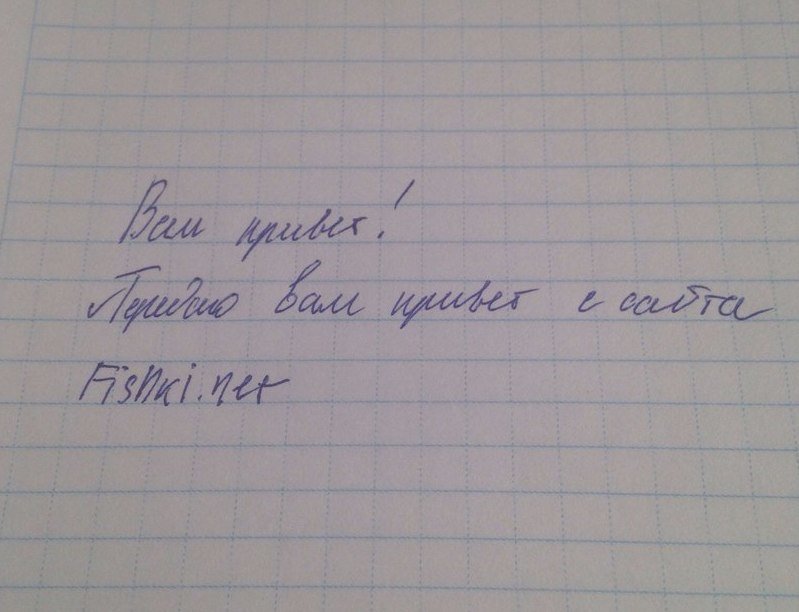 Вам привет!
Передаю вам привет с сайта
Fishki.net